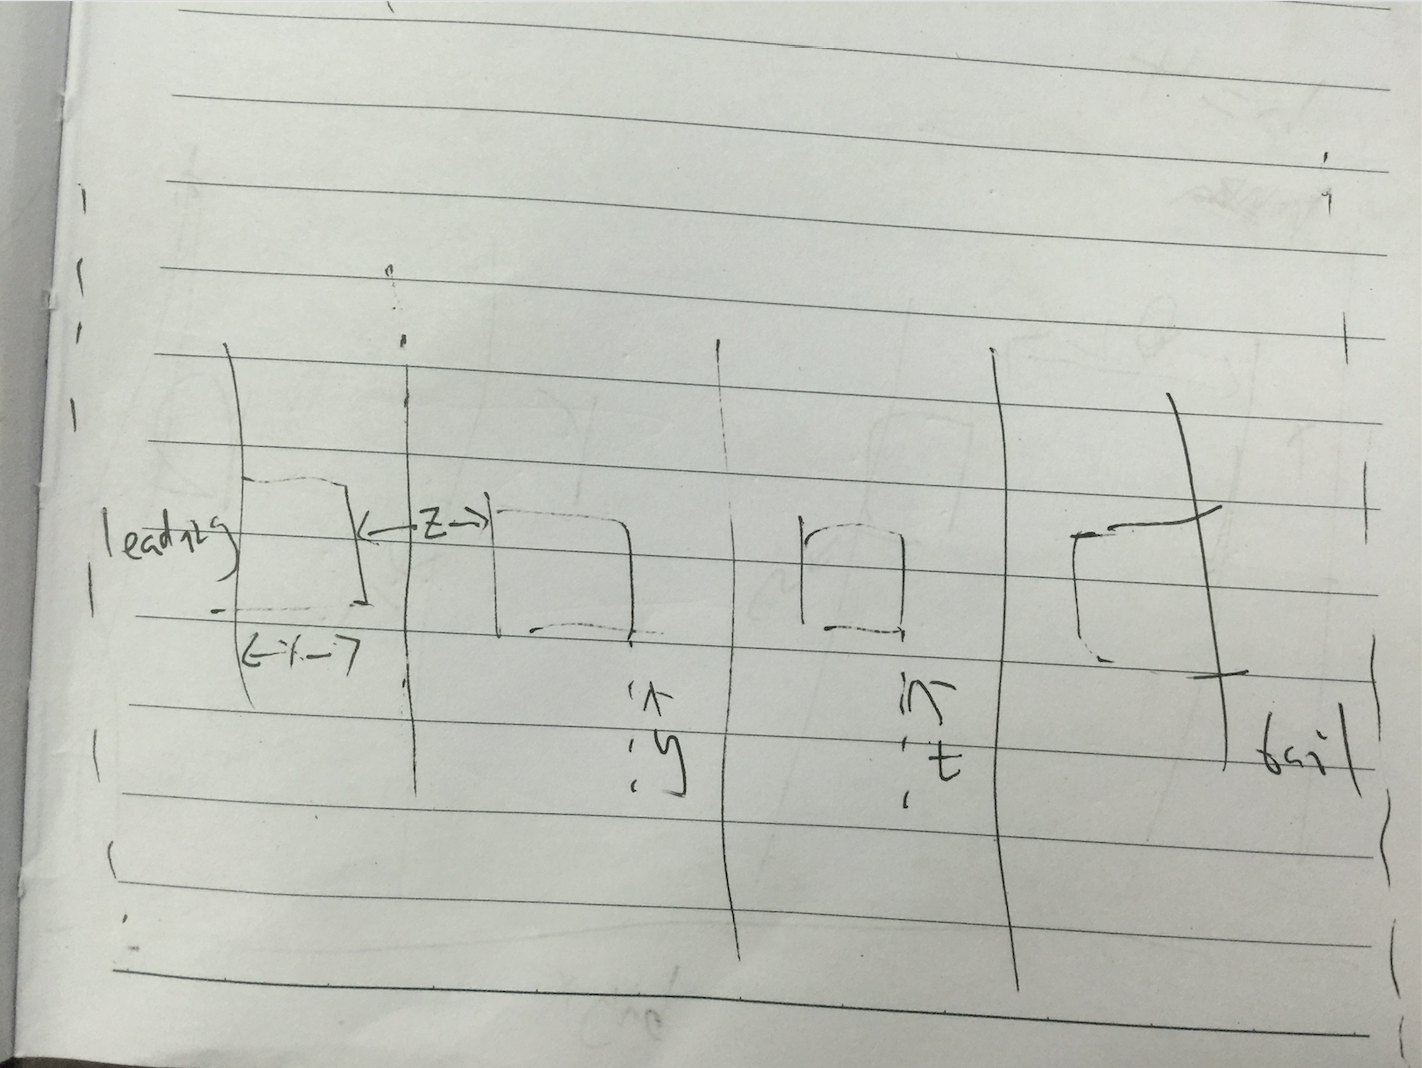 leading
z
x
y
t
tail